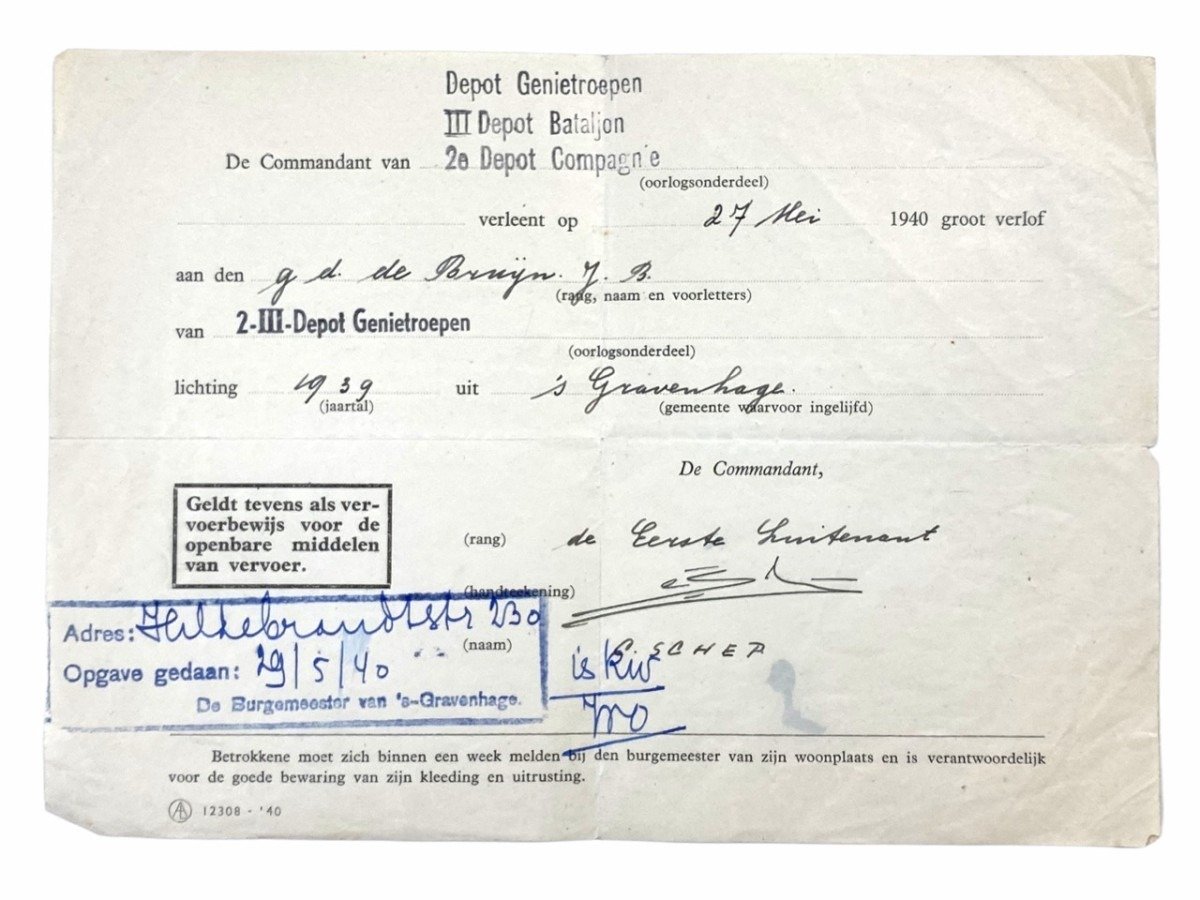 Depot Genietroepen
III Depot Bataljon
De Commandant van 2e Depot Compagnie
(oorlogsonderdeel)
verleent op 27 Mei 1940 groot verlof
aan den g d. de Bruyn. J. B.
(rang, naam en voorletters)
van 2-III-Depot Genietroepen
(oorlogsonderdeel)
lichting 1939 uit 's Gravenhage.
(jaartal) (gemeente waarvoor ingelijfd)
De Commandant,
Geldt tevens als ver-
voerbewijs voor de
openbare middelen
van vervoer.
(rang) de Eerste Luitenant
(handteekening)
Adres: Hildebrandtstr 230
(naam) SCHEP
Opgave gedaan: 29/5/40
De Burgemeester van 's-Gravenhage.
is
Betrokkene moet zich binnen een week melden bij den burgemeester van zijn woonplaats en is verantwoordelijk
voor de goede bewaring van zijn kleeding en uitrusting.
12308 - '40